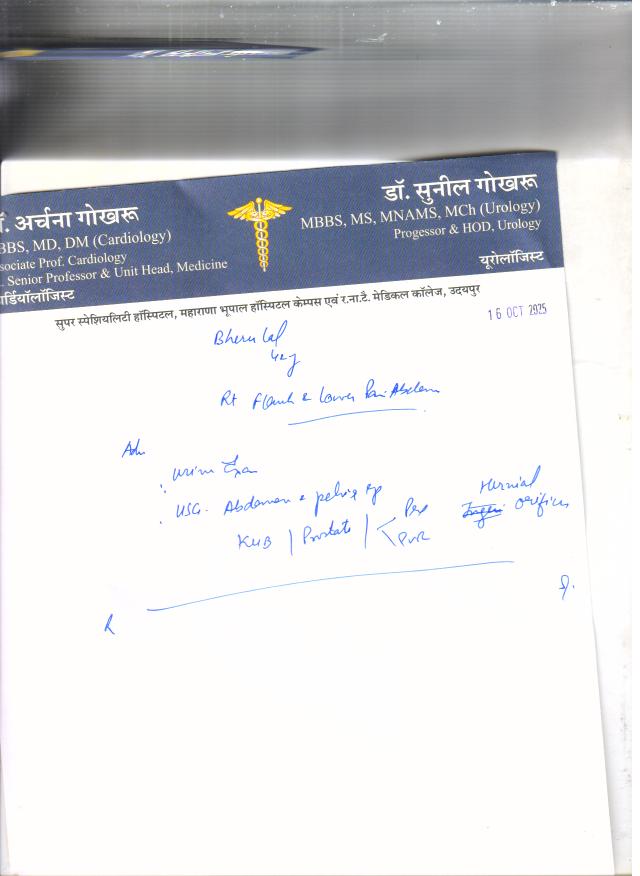 डॉ. सुनील गोखरू
MBBS, MS, MNAMS, MCh (Urology)
Progessor & HOD, Urology
यूरोलॉजिस्ट
. अर्चना गोखरू
BBS, MD, DM (Cardiology)
sociate Prof. Cardiology
. Senior Professor & Unit Head, Medicine
ार्डियॉलॉजिस्ट
सुपर स्पेशियलिटी हॉस्पिटल, महाराणा भूपाल हॉस्पिटल केम्पस एवं र.ना.टै. मेडिकल कॉलेज, उदयपुर
16 OCT 2025
Bheru Lal
Rt Flank & Lower Pain Abdomen
Adv
Urine Exam
USG. Abdomen & pelvis
KUB | Prostate | Pre PVR
Hernial orifices
R